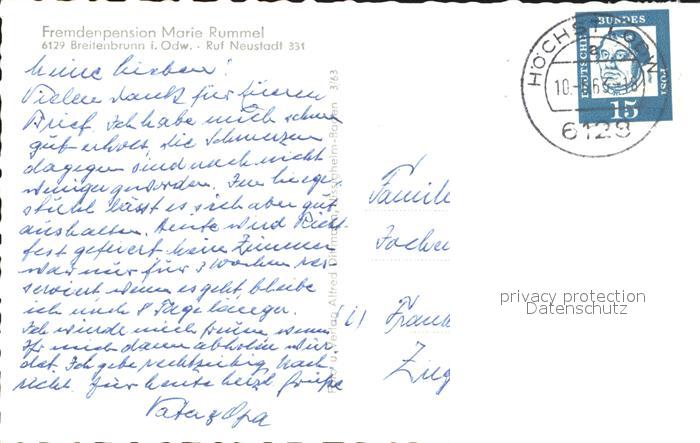 Fremdenpension Marie Rummel
6129 Breitenbrunn i. Odw. · Ruf Neustadt 331
Meine Lieben!
Vielen Dank für Eueren
Brief. Ich habe mich schon
gut erholt, die Schmerzen
dagegen sind noch nicht
weniger geworden. Im Liege-
stuhl lässt es sich aber gut
aushalten. Heute wird Richt-
fest gefeiert. Mein Zimmer
war nur für 3 Wochen res-
erviert wenn es geht bleibe
ich noch 8 Tage länger.
Ich würde mich freuen wenn
Ihr mich dann abholen wür-
det. Ich gebe rechtzeitig Nach-
richt. Für heute herzl. Grüße
Vater & Opa
3/63
Verlag Alfred
Familie
Jochen
Frank
Zieg
HÖCHST i. ODW.
a
6129
DEUTSCHE
BUNDES
POST
15
privacy protection
Datenschutz